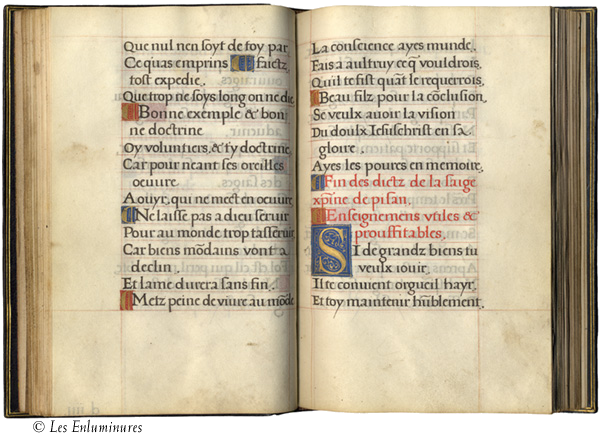 Que nul nen soyt de toy par
Ce quas emprins faictz
tost expedie.
Que trop ne soys long on ne die
Bonne exemple & bon
ne doctrine
Oy voluntiers, & ty doctrine,
Car pour neant ses oreilles
oeuure.
A ouyr, qui ne mect en oeuure
Ne laisse pas a dieu seruir
Pour au monde trop tasseruir
Car biens mōdains vont a
declin.
Et lame durera sans fin.
Metz peine de viure au mōde
La conscience ayes munde.
Fais a aultruy ceq vouldrois.
Quil te fist quāt le requerrois.
Beau filz pour la cōclusion
Se veulx auoir la vision
Du doulx Iesuschrist en sa
gloire.
Ayes les poures en memoire.
Fin des dictz de la saige
xpine de pisan.
Enseignemens vtiles &
prouffitables.
SI de grandz biens tu
veulx iouir.
Il te conuient orgueil hayr.
Et toy maintenir hūblement.
© Les Enluminures